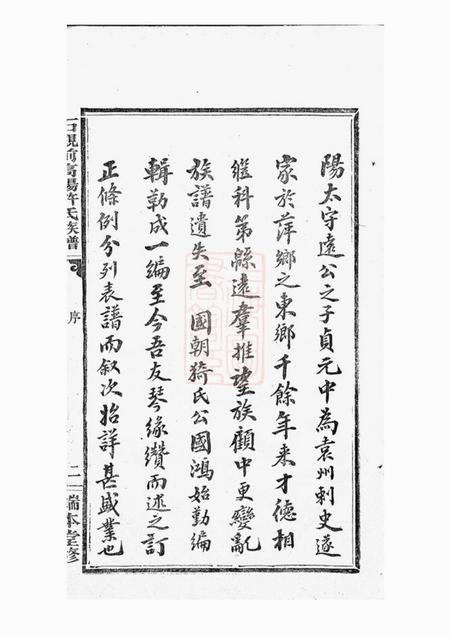 陽太守遠公之子貞元中為袁州刺史遂
家於萍鄉之東鄉千餘年来才德相
繼科第緜遠羣推望族顧中更變亂
族譜遺失至 國朝猗氏公國鴻始勤編
輯勒成一編至今吾友琴緣纘而述之訂
正條例分列表譜而叙次始詳甚盛業也
石觀前高陽許氏族譜
序
二
端本堂修